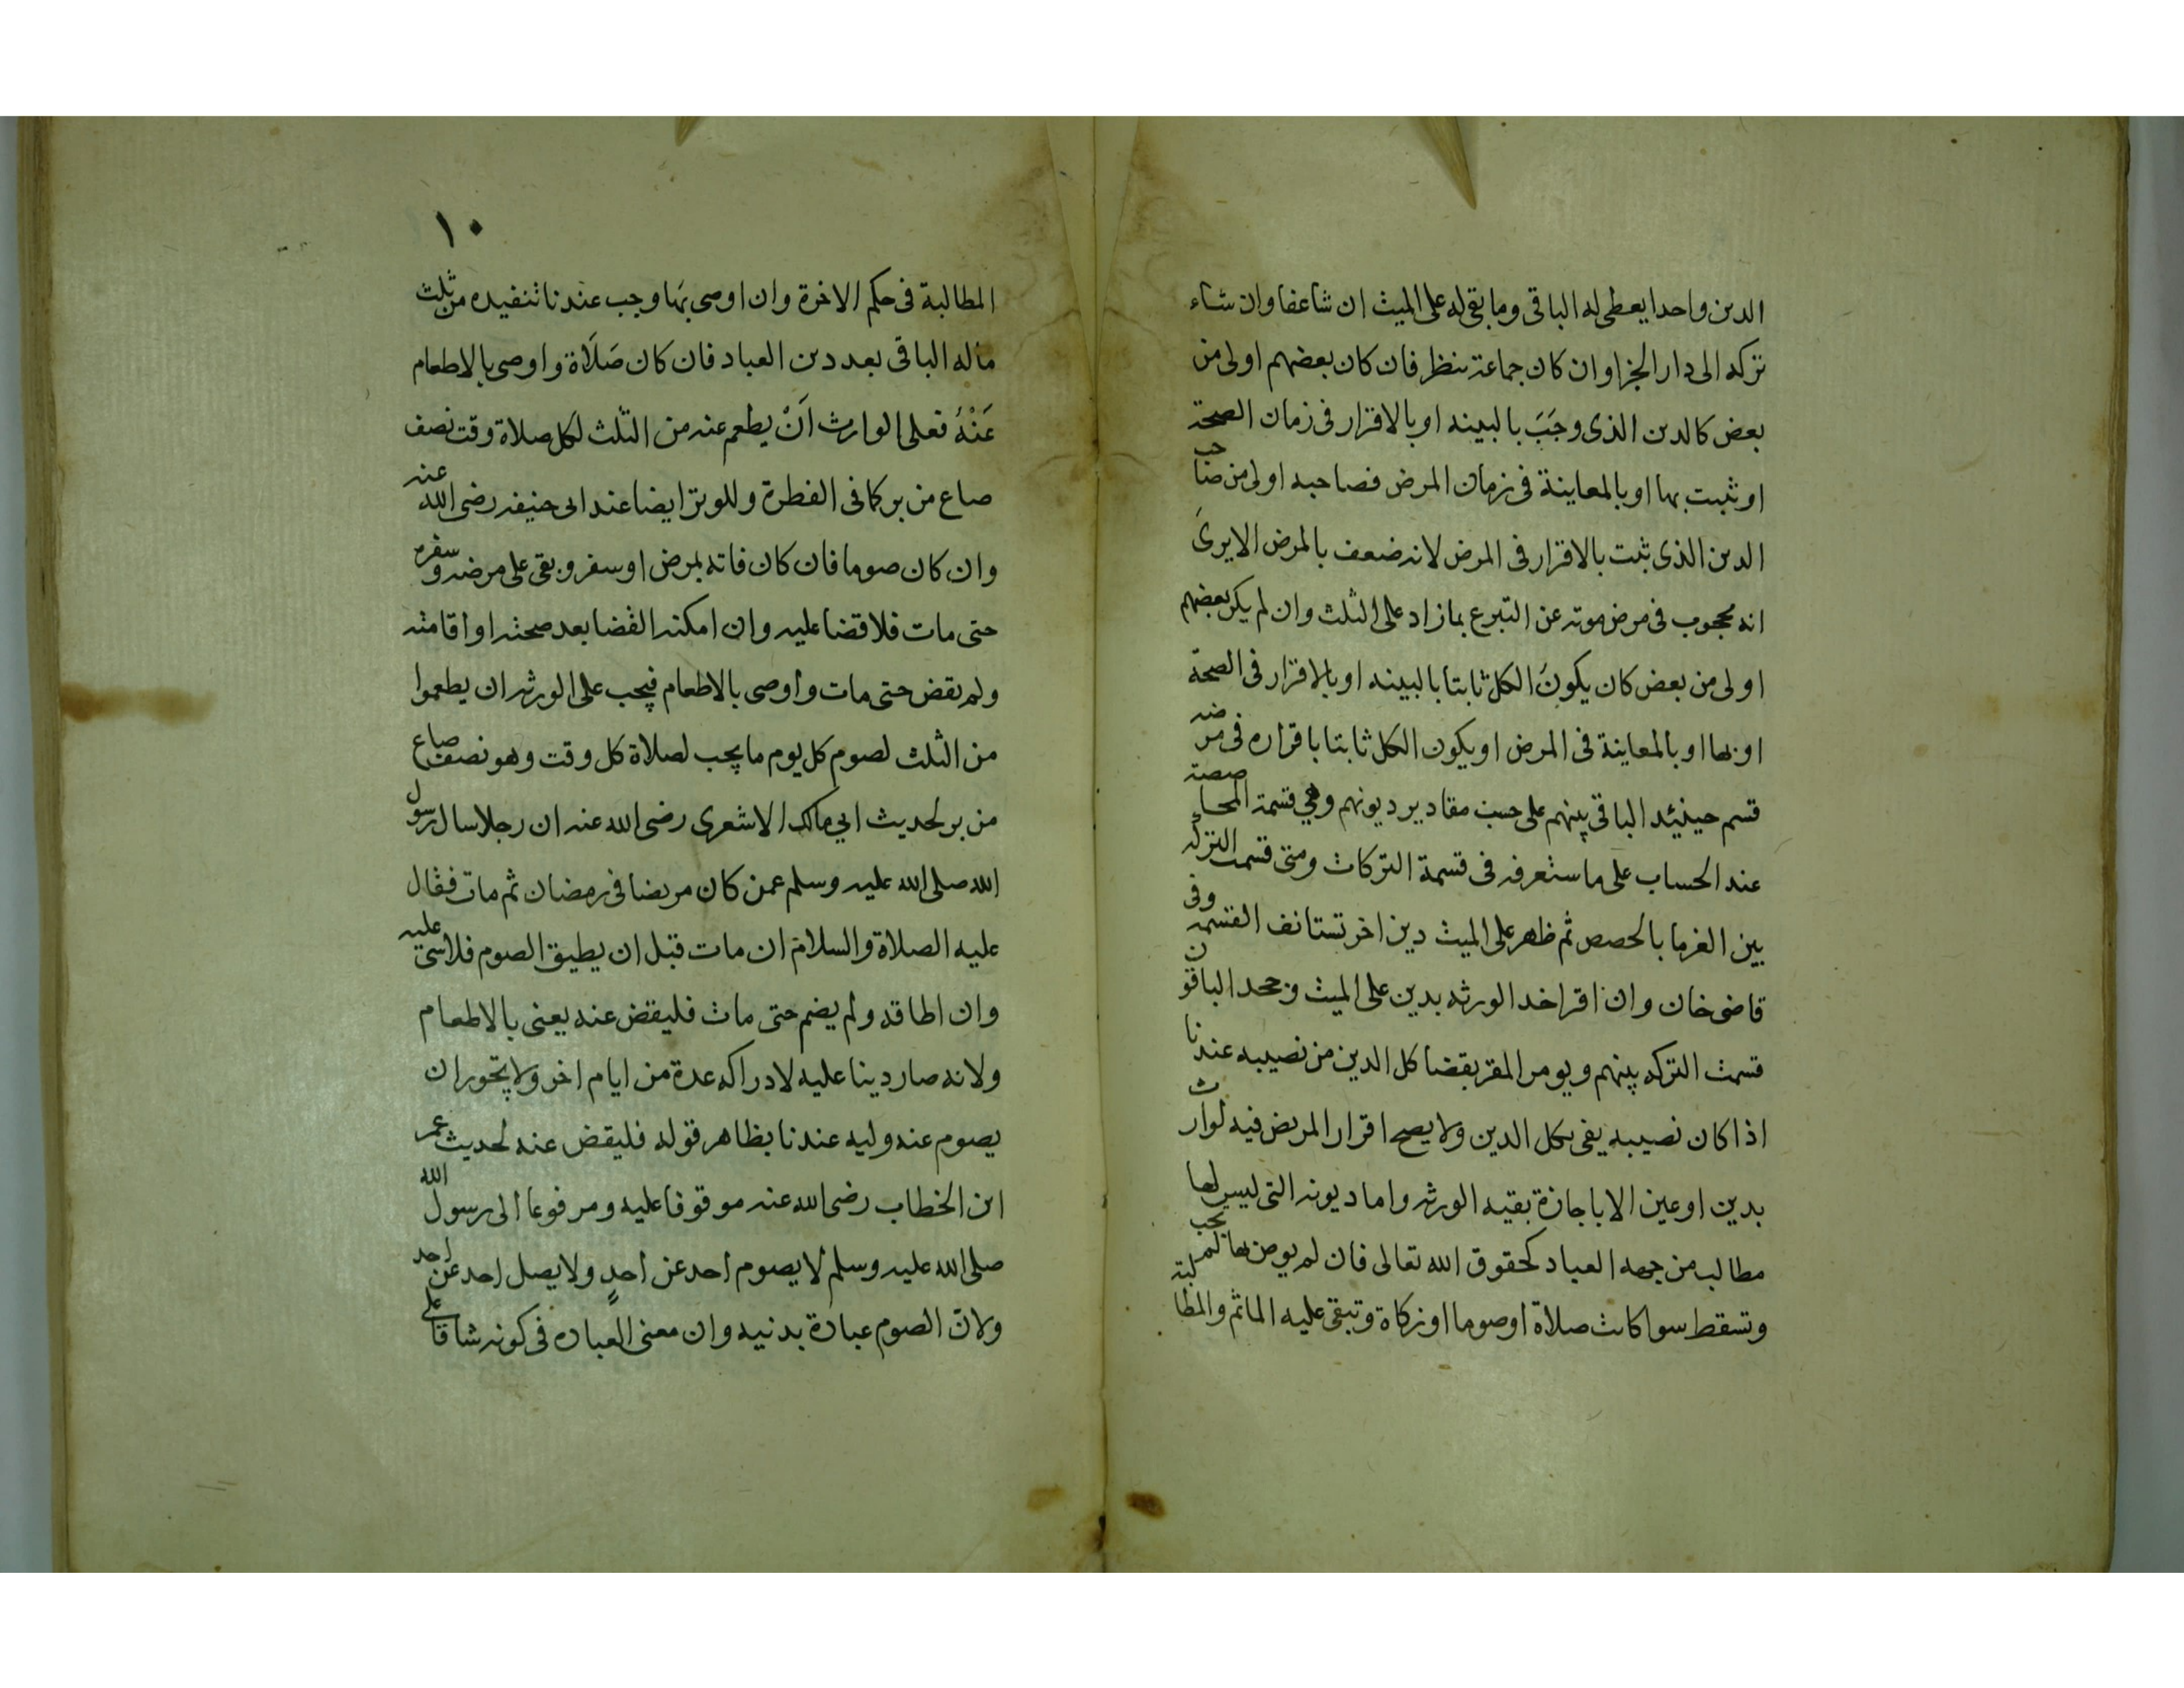 الدين واحدا يعطى له الباقى وما بقى له على الميت ان شاعفا وان شاء
تركه الى دار الجزا وان كان جماعة ينظر فان كان بعضهم اولى من
بعض كالدين الذى وجَبَ بالبينه او بالاقرار فى زمان الصحة
او ثبت بها او بالمعاينة فى زمان المرض فصاحبه اولى من صاحب
الدين الذى ثبت بالاقرار فى المرض لانه ضعف بالمرض الايرىَ
انه محجوب فى مرض موته عن التبرع بمازاد على الثلث وان لم يكن بعضهم
اولى من بعض كان يكونَ الكل ثابتا بالبينه او بالاقرار فى الصحة
او بها او بالمعاينة فى المرض او يكون الكل ثابتا باقراره فى مرضه
قسم حينيئد الباقى بينهم على حسب مقادير ديونهم وهي قسمة المحاصصة
عند الحساب على ما ستعرفه فى قسمة التركات ومتى قسمت التركه
بين الغرما بالحصص ثم ظهر على الميت دين اخر تستانف القسمه وفى
قاضى خان وان اقر اخد الورثه بدين على الميث وجحد الباقون
قسمت التركه بينهم ويومر المقر بقضا كل الدين من نصيبه عندنا
اذا كان نصيبه يفى بكل الدين ولا يصح اقرار المريض فيه لوارث
بدين او عين الا باجازة بقيه الورثه واما ديونه التى ليس لها
مطالب من جهه العباد كحقوق الله تعالى فان لم يوص بها لم يجب
وتسقط سوا كانت صلاة اوصوما او زكاة وتبقى عليه الماثم والمطالبة
١٠
المطالبة فى حكم الاخرة وان اوصى بهَا وجب عندنا تنفيده من ثلث
ماله الباقى بعد دين العباد فان كان صَلَاة واوصى بالاطعام
عَنْهُ فعلى الوارث اَنْ يطعم عنه من الثلث لكل صلاة وقت نصف
صاع من بر كما فى الفطرة وللوتر ايضا عند ابى حنيفه رضى الله عنه
وان كان صوما فان كان فاته بمرض او سفر وبقى على مرضه وسفره
حتى مات فلا قضا عليه وان امكنه القضا بعد صحته او اقامته
ولم يقض حتى مات واوصى بالاطعام فيجب على الورثه ان يطعموا
من الثلث لصوم كل يوم ما يجب لصلاة كل وقت وهو نصف صاع
من بر لحديث ابي مالك الاشعرى رضى الله عنه ان رجلا سال رسول
الله صلى الله عليه وسلم عمن كان مريضا فى رمضان ثم مات فقال
عليه الصلاة والسلام ان مات قبل ان يطيق الصوم فلا شى عليه
وان اطاقه ولم يضم حتى ماث فليقض عنه يعنى بالاطعام
ولانه صار دينا عليه لادراكه عدة من ايام اخر ولا يجوز ان
يصوم عنه وليه عندنا بظاهر قوله فليقض عنه لحديث عمر
ابن الخطاب رضى الله عنه موقوفا عليه ومرفوعا الى رسول الله
صلى الله عليه وسلم لا يصوم احد عن احدٍ ولا يصل احد عن احد
ولان الصوم عبادة بدنيه وان معنى العباده فى كونه شاقا على